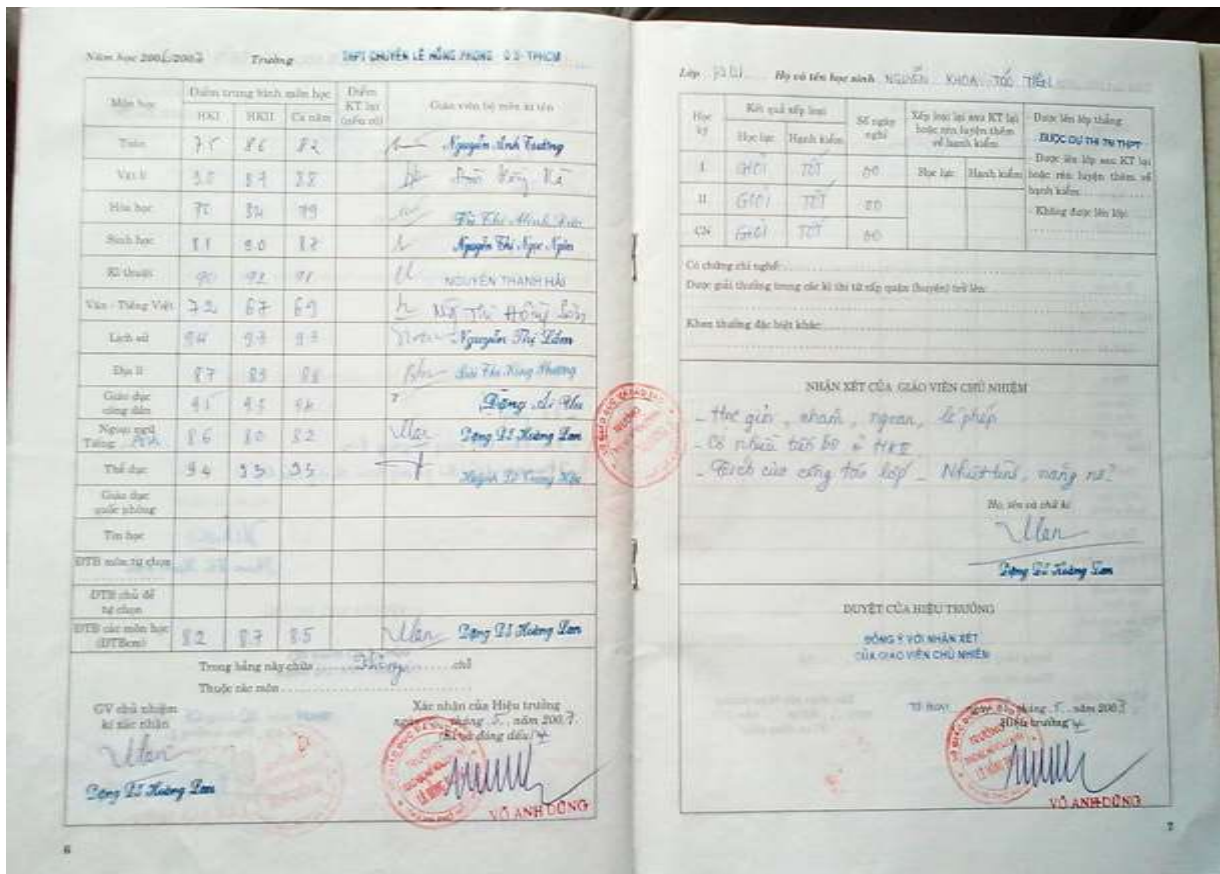 Năm học 2006/2007 Trường THPT CHUYÊN LÊ HỒNG PHONG Q.5- TPHCM
Môn học
Điểm trung bình môn học
Điểm KT lại (nếu có)
Giáo viên bộ môn kí tên
HKI HKII Cả năm
Toán 7.5 8.6 8.2 Nguyễn Anh Trường
Vật lí 8.7 8.8
Hóa học 79
Sinh học 8.1 9.0 8.7 Nguyễn Thị Ngọc Ngân
Kĩ thuật 90 92 91 NGUYỄN THANH HẢI
Văn - Tiếng Việt 7.2 6.7 6.9
Lịch sử 9.4 9.3 9.3 Nguyễn Thị Lắm
Địa lí 8.7 8.9 8.8
Giáo dục công dân 9.1 9.5 9.4
Ngoại ngữ Tiếng Anh 8.6 8.0 8.2 Đặng Lê Hoàng Lan
Thể dục 9.4
Giáo dục quốc phòng
Tin học
ĐTB môn tự chọn
ĐTB chủ đề tự chọn
ĐTB các môn học (ĐTBcm) 8.2 8.7 8.5 Hoàng Lan
Trong bảng này chữa Không chỗ
Thuộc các môn
GV chủ nhiệm
kí xác nhận
Hoàng Lan
Xác nhận của Hiệu trưởng
tháng 5 năm 2007
(Kí và đóng dấu)
VÕ ANH DŨNG
6
Lớp Họ và tên học sinh NGUYỄN KHOA TÓC TIÊN
Học kỳ
Kết quả xếp loại
Số ngày nghỉ
Xếp loại lại sau KT lại hoặc rèn luyện thêm về hạnh kiểm
Học lực Hạnh kiểm
Học lực Hạnh kiểm
I GIỎI TỐT 00
II GIỎI TỐT 00
CN GIỎI TỐT 00
- Được lên lớp thẳng:
ĐƯỢC DỰ THI TN THPT
- Được lên lớp sau KT lại
hoặc rèn luyện thêm về
hạnh kiểm
- Không được lên lớp
Có chứng chỉ nghề:
Được giải thưởng trong các kì thi từ cấp quận (huyện) trở lên:
Khen thưởng đặc biệt khác:
NHẬN XÉT CỦA GIÁO VIÊN CHỦ NHIỆM
- Học giỏi, ngoan, lễ phép
- Có nhiều tiến bộ ở HKII
- Tích cực công tác lớp - Nhiệt tình, năng nổ
Họ, tên và chữ kí
Hoàng Lan
DUYỆT CỦA HIỆU TRƯỞNG
ĐỒNG Ý VỚI NHẬN XÉT
CỦA GIÁO VIÊN CHỦ NHIỆM
tháng 5 năm 2007
Hiệu trưởng
VÕ ANH DŨNG
7